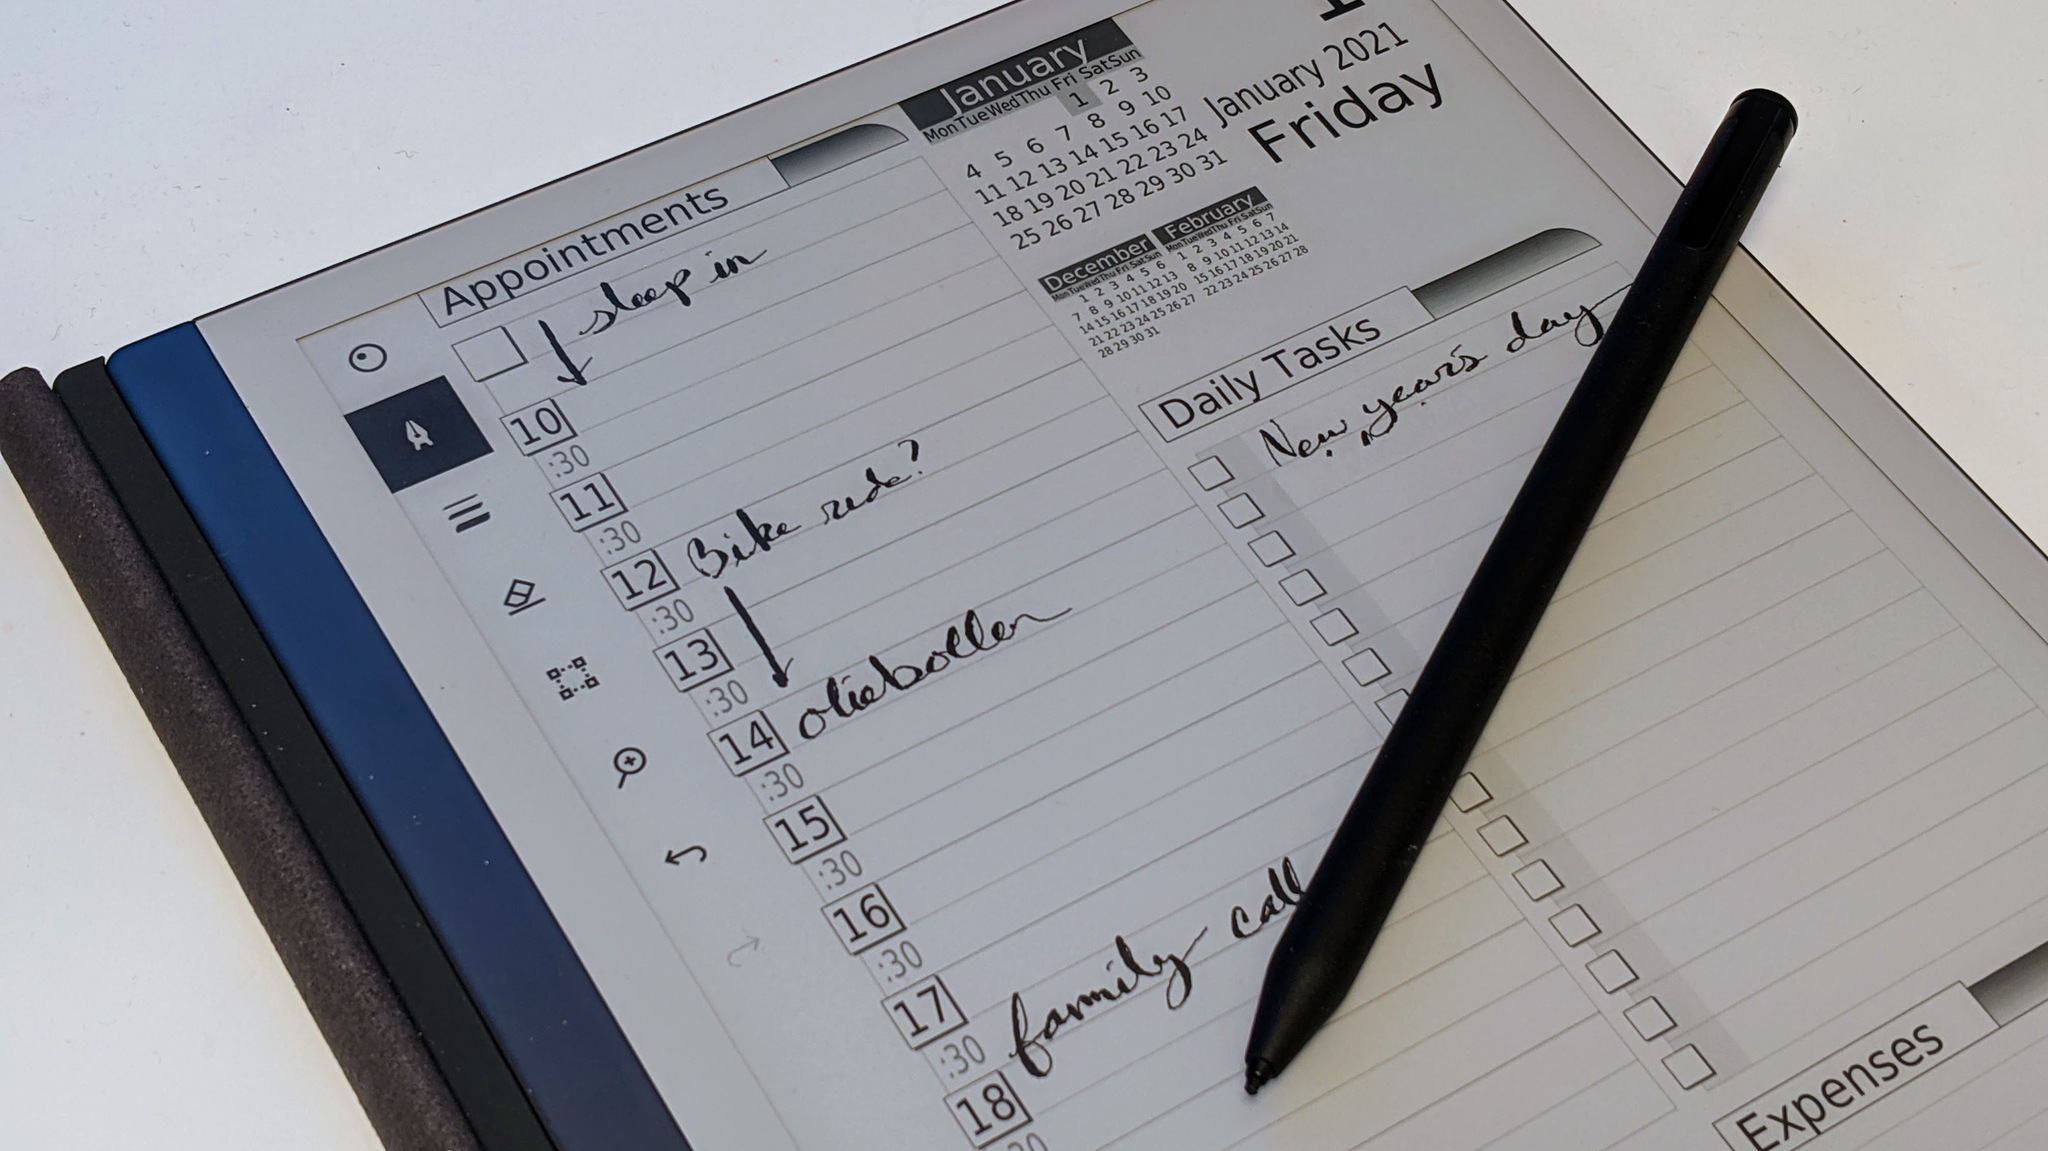 Appointments
sleep in
10
:30
11
:30
12 Bike ride?
:30
13
:30
14 oliebollen
:30
15
:30
16
:30
17
:30 family call
18
:30
January
Mon Tue Wed Thu Fri Sat Sun
1 2 3
4 5 6 7 8 9 10
11 12 13 14 15 16 17
18 19 20 21 22 23 24
25 26 27 28 29 30 31
January 2021
Friday
December
Mon Tue Wed Thu Fri Sat Sun
1 2 3 4 5 6
7 8 9 10 11 12 13
14 15 16 17 18 19 20
21 22 23 24 25 26 27
28 29 30 31
February
Mon Tue Wed Thu Fri Sat Sun
1 2 3 4 5 6 7
8 9 10 11 12 13 14
15 16 17 18 19 20 21
22 23 24 25 26 27 28
Daily Tasks
New year's day
Expenses